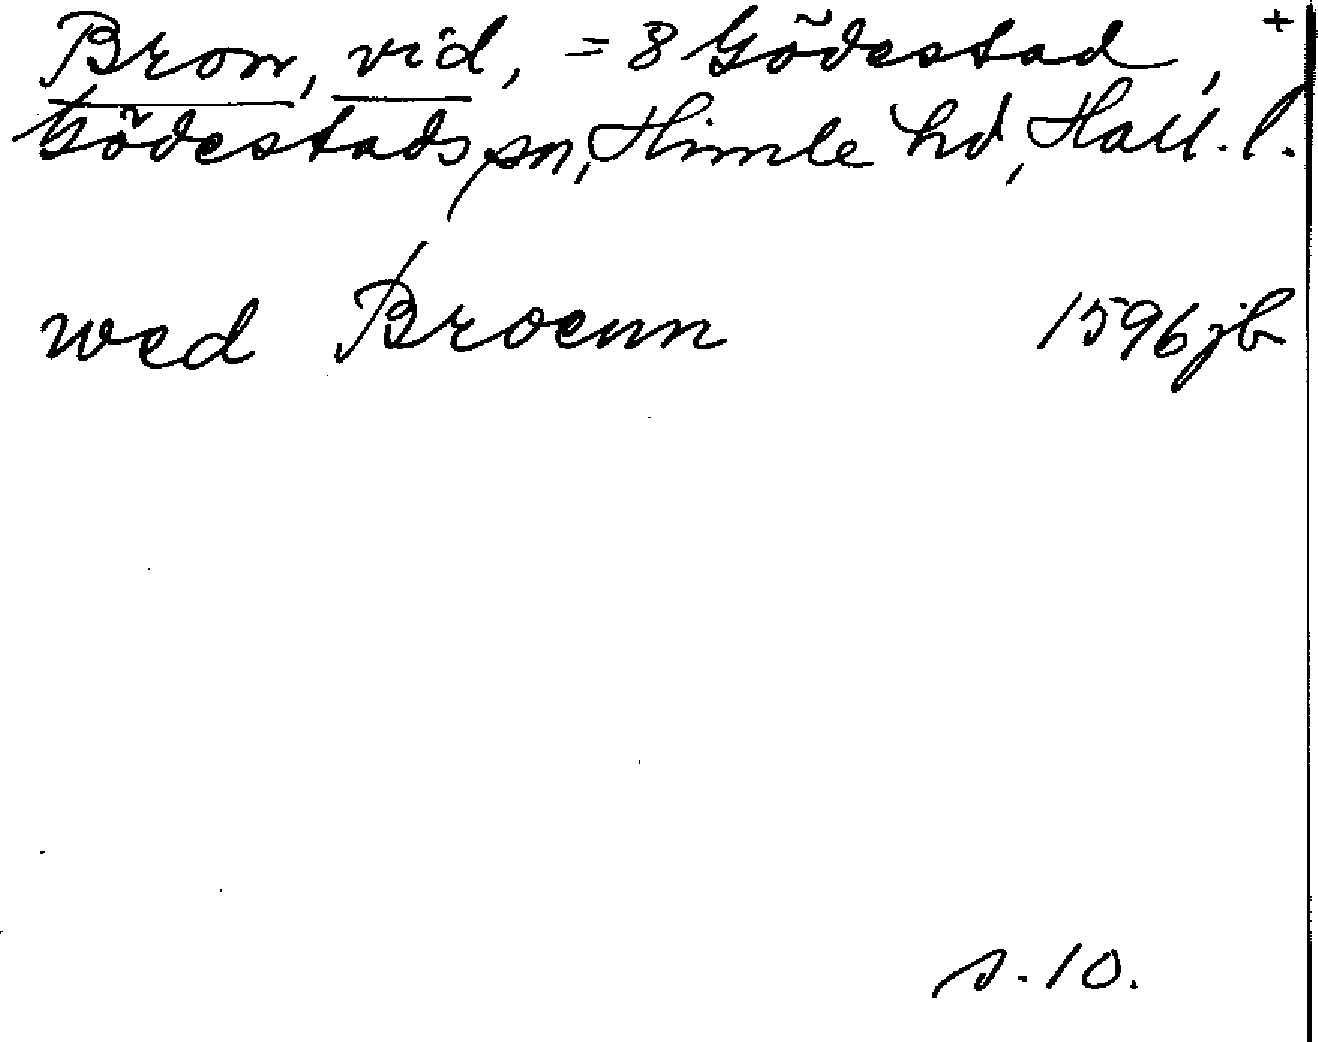 Bron, vid, = 8 Gödestad, +
Gödestads sn, Himle hd, Hall. l.
wed Broenn 1596 jb
s. 10.